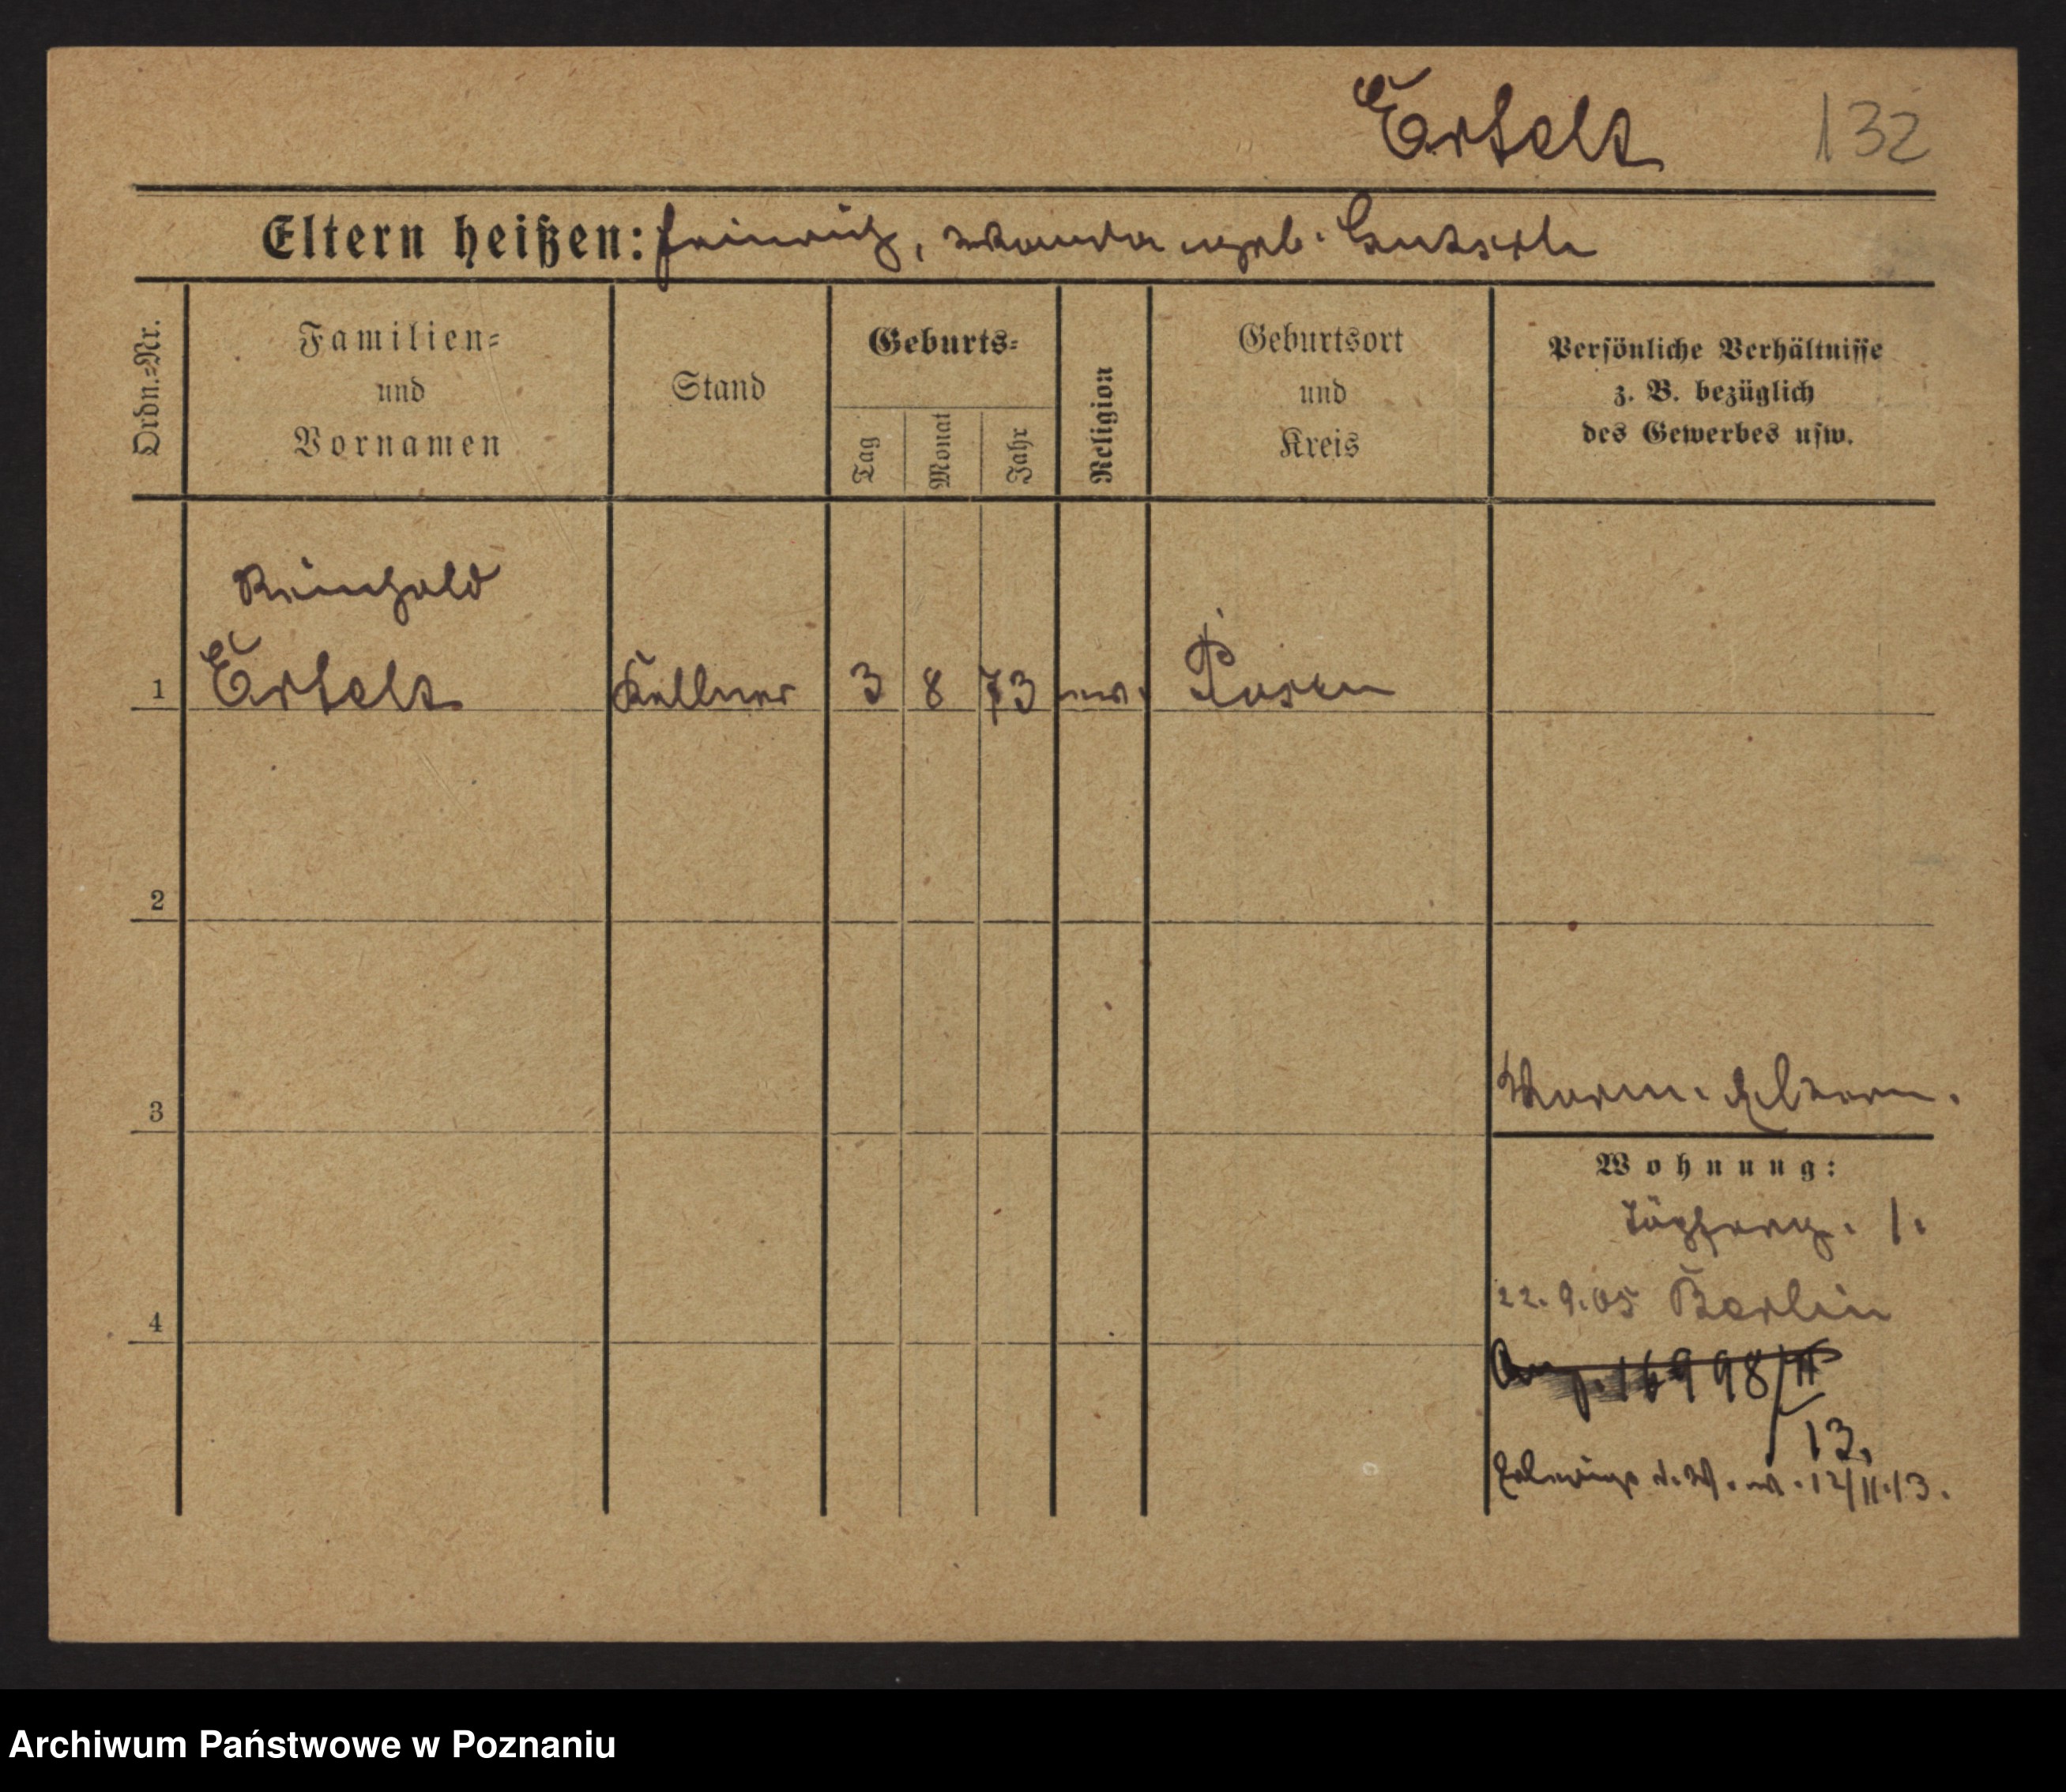 Ertelt 132
Eltern heißen: Heinrich, Wanda geb. Gutsche
Ordn.-Nr.
Familien-
und
Vornamen
Stand
Geburts-
Tag
Monat
Jahr
Religion
Geburtsort
und
Kreis
Persönliche Verhältnisse
z. B. bezüglich
des Gewerbes usw.
Reinhold
1 Ertelt Kellner 3 8 73 ev. Posen
2
3
Eltern.
Wohnung:
1.
22.9.05 Berlin
4
16998/II
13.
12/11.13.
Archiwum Państwowe w Poznaniu